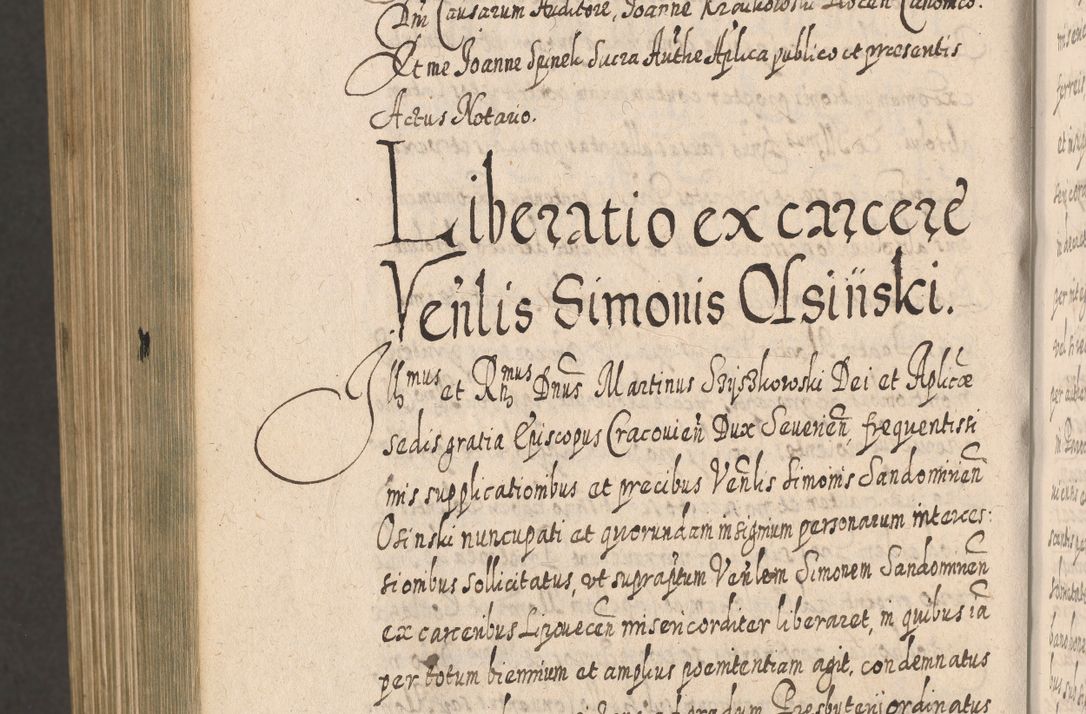 Dni Causarum Auditore, Joanne
Et me Joanne Spinek Sacra Authe Aplica publico et presentis
Actus Notario.
Liberatio ex carcere
Ven̄lis Simonis Osinski.
Illmus et Rmus Dnūs Martinus Szyszkowski Dei et Aplicæ
sedis gratia Episcopus Cracovien̄ Dux Severien̄, frequentissi
mis supplicationibus et precibus Ven̄lis Simonis Sandomirien̄
Osinski nuncupati et quorundam insignium personarum interces:
sionibus sollicitatus, ut supraptum Ven̄lem Simonem Sandomirien̄
ex carceribus Lipovecen̄ misericorditer liberaret, in quibus iā
per totum biennium et amplius poenitentiam agit, condemnatus
Presbyteri ordinatus